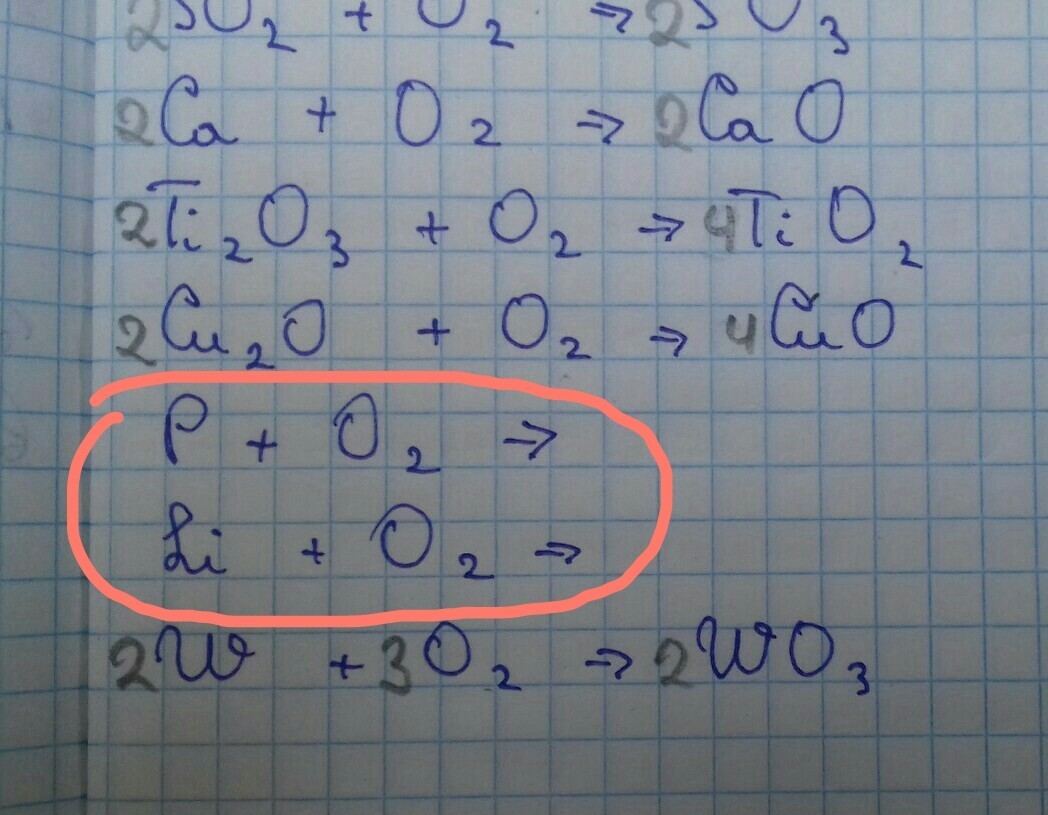 2SO2 + O2 → 2SO3
2Ca + O2 → 2CaO
2Ti2O3 + O2 → 4TiO2
2Cu2O + O2 → 4CuO
P + O2 →
Li + O2 →
2W + 3O2 → 2WO3